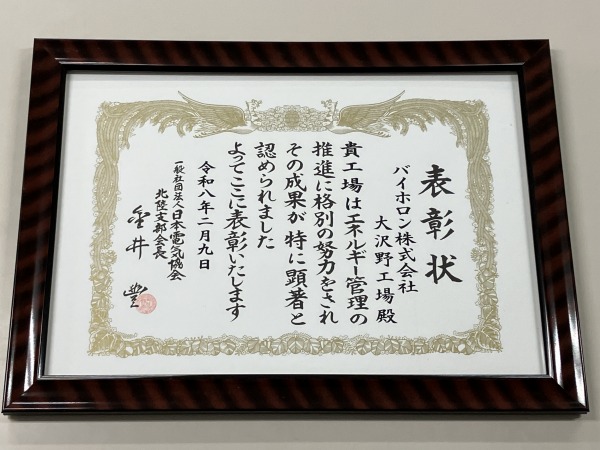 表彰状
バイホロン株式会社
大沢野工場殿
貴工場はエネルギー管理の
推進に格別の努力をされ
その成果が特に顕著と
認められました
よってここに表彰いたします
令和八年二月九日
一般社団法人日本電気協会
北陸支部会長
金井豊